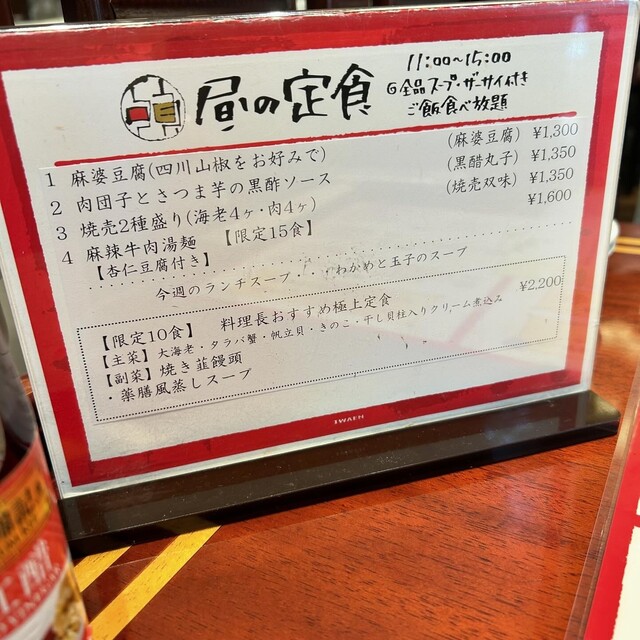 昼の定食
11:00~15:00
全品スープ・ザーサイ付き
ご飯食べ放題
1 麻婆豆腐(四川山椒をお好みで) (麻婆豆腐) ¥1,300
2 肉団子とさつま芋の黒酢ソース (黒醋丸子) ¥1,350
3 焼売2種盛り(海老4ヶ・肉4ヶ) (焼売双味) ¥1,350
4 麻辣牛肉湯麺 【限定15食】 ¥1,600
【杏仁豆腐付き】
今週のランチスープ わかめと玉子のスープ
【限定10食】 料理長おすすめ極上定食 ¥2,200
【主菜】大海老・タラバ蟹・帆立貝・きのこ・干し貝柱入りクリーム煮込み
【副菜】焼き韮饅頭
・薬膳風蒸しスープ